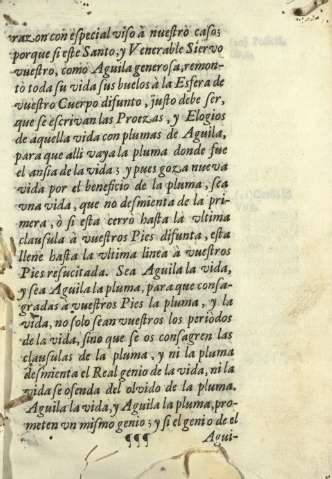 razon con especial viso à nuestro caso;
porque si este Santo, y Venerable Siervo
vuestro, como Aguila generosa, remon-
tò toda su vida sus buelos à la Esfera de
vuestro Cuerpo difunto, justo debe ser,
que se escrivan las Proezas, y Elogios
de aquella vida con plumas de Aguila,
para que alli vaya la pluma donde fue
el ansia de la vida; y pues goza nueva
vida por el beneficio de la pluma, sea
una vida, que no desmienta de la pri-
mera, ò si esta cerrò hasta la vltima
clausula à vuestros Pies difunta, esta
llene hasta la vltima linea à vuestros
Pies resucitada. Sea Aguila la vida,
y sea Aguila la pluma, para que consa-
gradas à vuestros Pies la pluma, y la
vida, no solo sean vuestros los periodos
de la vida, sino que se os consagren las
clausulas de la pluma, y ni la pluma
desmienta el Real genio de la vida, ni la
vida se ofenda del olvido de la pluma.
Aguila la vida, y Aguila la pluma, pro-
meten vn mismo genio; y si el genio de el
¶¶¶ Agui-